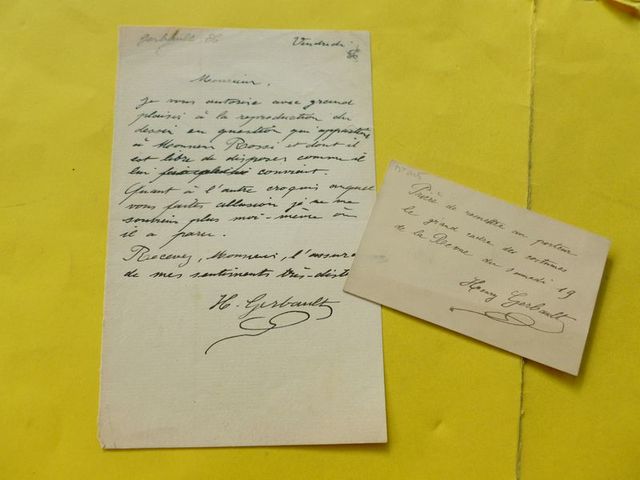 Gerbault 86
Vendredi
86
Monsieur,
Je vous autorise avec grand
plaisir à la reproduction du
dessin en question qui appartient
à Monsieur Rossi et dont il
est libre de disposer comme il
lui convient.
Quant à l'autre croquis auquel
vous faites allusion je ne me
souviens plus moi-même où
il a paru.
Recevez, Monsieur, l'assura
de mes sentiments très-disti
H. Gerbault
Prière de remettre au porteur
le grand cadre des costumes
de la Revue du samedi 19
Henry Gerbault